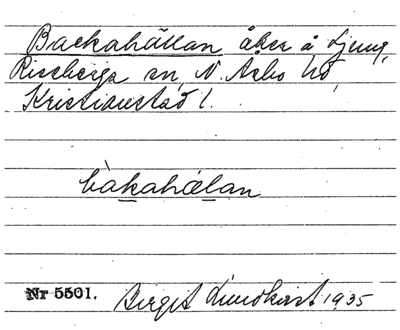 Backahällan åker å Ljung,
Riseberga sn, N. Åsbo hd,
Kristianstad l.
bàkahælan
Nr 5501. Birgit Lundkvist 1935